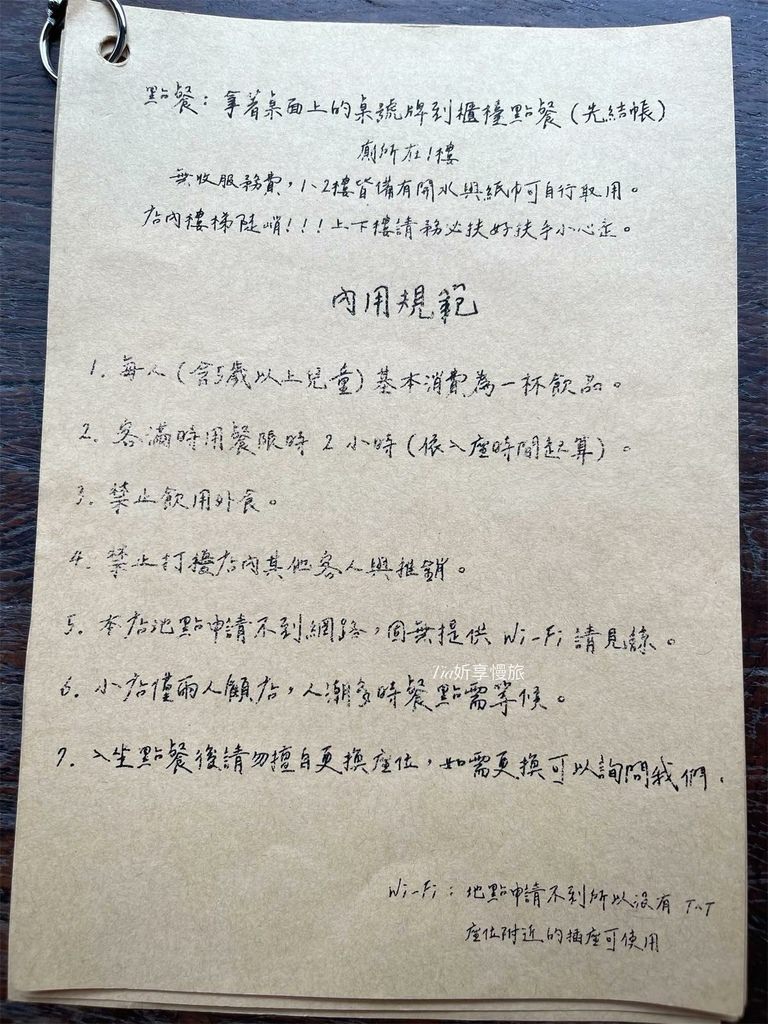 點餐：拿著桌面上的桌號牌到櫃檯點餐（先結帳）
廁所在1樓
無收服務費，1、2樓皆備有開水與紙巾可自行取用。
店內樓梯陡峭！！！上下樓請務必扶好扶手小心走。
內用規範
1. 每人（含5歲以上兒童）基本消費為一杯飲品。
2. 客滿時用餐限時2小時（依入座時間起算）。
3. 禁止飲用外食。
4. 禁止打擾店內其他客人與推銷。
5. 本店地點申請不到網路，固無提供Wi-Fi請見諒。
Tia妡享慢旅
6. 小店僅兩人顧店，人潮多時餐點需等候。
7. 入坐點餐後請勿擅自更換座位，如需更換可以詢問我們.
Wi-Fi：地點申請不到所以沒有 T^T
座位附近的插座可使用